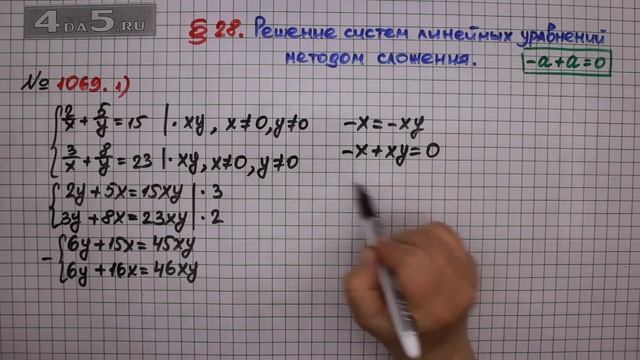 4DA5.RU
§ 28. Решение систем линейных уравнений
методом сложения. -a+a=0
№ 1069. 1)
2/x + 5/y = 15 | · xy, x≠0, y≠0
3/x + 8/y = 23 | · xy, x≠0, y≠0
2y + 5x = 15xy | · 3
3y + 8x = 23xy | · 2
- 6y + 15x = 45xy
6y + 16x = 46xy
-x = -xy
-x + xy = 0